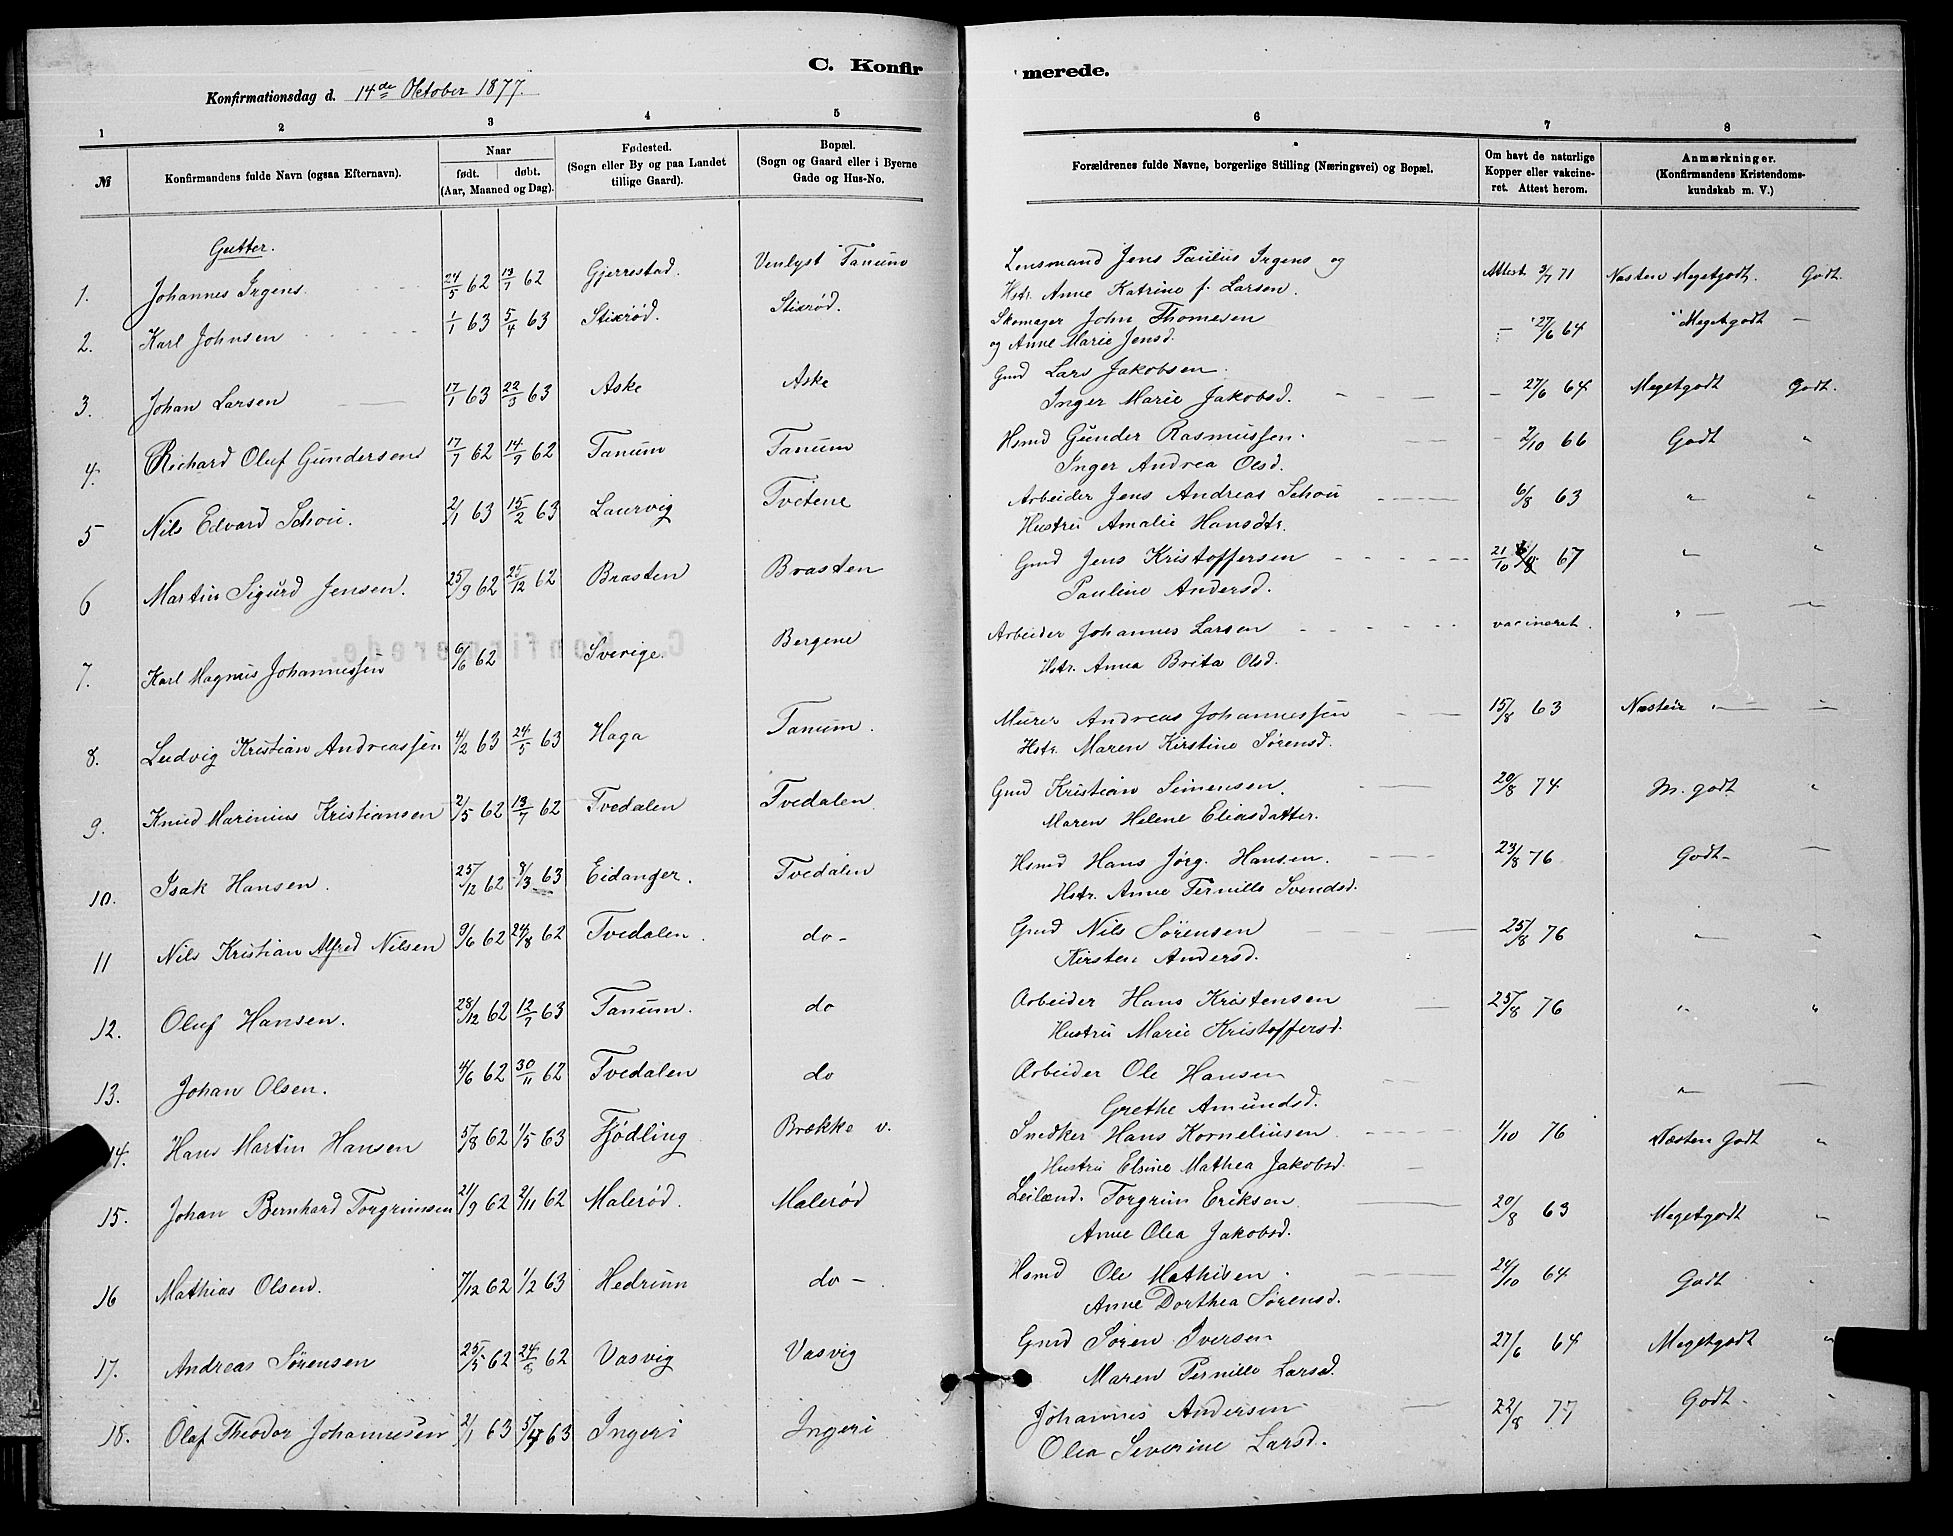 C. Konfirmerede.
Konfirmationsdag d. 14de Oktober 1877.
1 2 3 4 5 6 7 8
№ Konfirmandens fulde Navn (ogsaa Efternavn). Naar født. døbt. (Aar, Maaned og Dag). Fødested. (Sogn eller By og paa Landet tillige Gaard). Bopæl. (Sogn og Gaard eller i Byerne Gade og Hus-No. Forældrenes fulde Navne, borgerlige Stilling (Næringsvei) og Bopæl. Om havt de naturlige Kopper eller vakcineret. Attest herom. Anmærkninger. (Konfirmandens Kristendomskundskab m. V.)
Gutter.
1. Johannes Irgens. 24/5 62 13/7 62 Gjerrestad. Venlyst Tanum Lensmand Jens Paulus Irgens og Attest 3/7 71 Næsten Megetgodt. Godt.
Hstr. Anne Katrine f. Larsen.
2. Karl Johnsen 1/1 63 5/4 63 Stixrød. Stixrød. Skomager John Thomesen - 27/6 64 " Megetgodt -
og Anne Marie Jensd.
3. Johan Larsen 17/1 63 22/3 63 Aske Aske Gmd Lars Jakobsen. - 27/6 64 Megetgodt Godt.
Inger Marie Jakobsd.
4. Richard Oluf Gundersen 17/7 62 14/9 62 Tanum Tanum Hsmd Gunder Rasmussen. - 2/10 66 Godt "
Inger Andrea Olsd.
5 Nils Edvard Schou. 2/1 63 15/2 63 Laurvig Tvetene Arbeider Jens Andreas Schou 6/8 63 " "
Hustru Amalie Hansdtr.
6 Martin Sigurd Jensen. 25/9 62 25/12 62 Brasten Brasten Gmd Jens Kristoffersen 21/10 67 " "
Pauline Andersd.
7. Karl Magnus Johannessen 6/6 62 Sverige. Bergene Arbeider Johannes Larsen vacineret. " - -
Hstr. Anna Brita Olsd.
8. Ludvig Kristian Andreassen 4/2 63 24/5 63 Haga Tanum. Murer Andreas Johannessen 15/8 63 Næsten " -
Hstr. Maren Kirstine Sørensd.
9. Knud Marinius Kristiansen 2/5 62 13/7 62 Tvedalen Tvedalen. Gmd Kristian Simensen. 20/8 74 M. godt "
Maren Helene Eliasdatter.
10. Isak Hansen. 25/12 62 8/3 63 Eidanger. Tvedalen Hsmd Hans Jørg. Hansen. 23/8 76 Godt - -
Hstr. Anne Pernille Svendsd.
11 Nils Kristian Alfred Nilsen 9/6 62 24/8 62 Tvedalen. do - Gmd Nils Sørensen 25/8 76 " "
Kirsten Andersd.
12. Oluf Hansen. 28/12 62 12/7 63 Tanum. do Arbeider Hans Kristensen 25/8 76 " "
Hustru Marie Kristoffersd.
13. Johan Olsen. 4/6 62 30/11 62 Tvedalen do Arbeider Ole Hansen " -
Grethe Amundsd.
14. Hans Martin Hansen 5/8 62 1/5 63 Fjødling Brække v. Snedker Hans Korneliusen 1/10 76 Næsten Godt "
Hustru Elsine Mathea Jakobsd.
15. Johan Bernhard Torgrimsen 21/9 62 2/11 62 Malerød. Malerød Leilænd. Torgrim Eriksen 20/8 63 Megetgodt "
Anne Olea Jakobsd.
16 Mathias Olsen. 7/12 62 1/2 63 Hedrum do - Hsmd Ole Mathisen. 24/10 64 Godt "
Anne Dorthea Sørensd.
17. Andreas Sørensen 25/5 62 24/8 62 Vasvig Vasvig Gmd Søren Iversen 27/6 64 Megetgodt "
Maren Pernille Larsd.
18. Olaf Theodor Johannesen 2/1 63 5/4 63 Ingeri Ingeri Johannes Andersen 22/8 77 Godt -
Olea Severine Larsd.